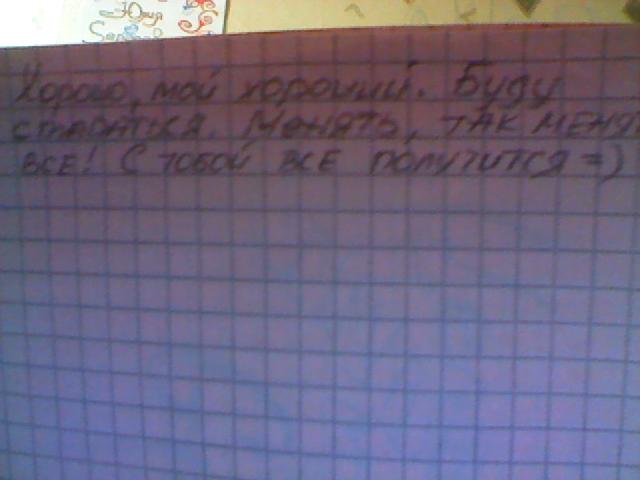 Хорошо, мой хороший. Буду
стараться. Менять, так менять
ВСЕ! С тобой ВСЕ получится =)